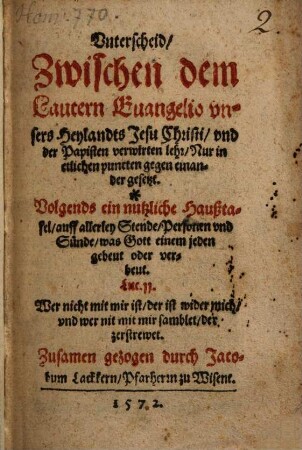 Hom. 770.
2.
Vnterscheid/
Zwischen dem
Lautern Euangelio vn-
sers Heylandts Jesu Christi/ vnd
der Papisten verwirten lehr/ Nur in
etlichen puncten gegen einan-
der gesetzt.
*
Volgends ein nutzliche Haußta-
fel/ auff allerley Stende/ Personen vnd
Sünde/ was Gott einem jeden
gebeut oder ver-
beut.
Luc. 11.
Wer nicht mit mir ist/ der ist wider mich/
vnd wer nit mit mir samblet/ der
zerstrewet.
Zusamen gezogen durch Jaco-
bum Lackkern/ Pfarherrn zu Wisent.
1572.